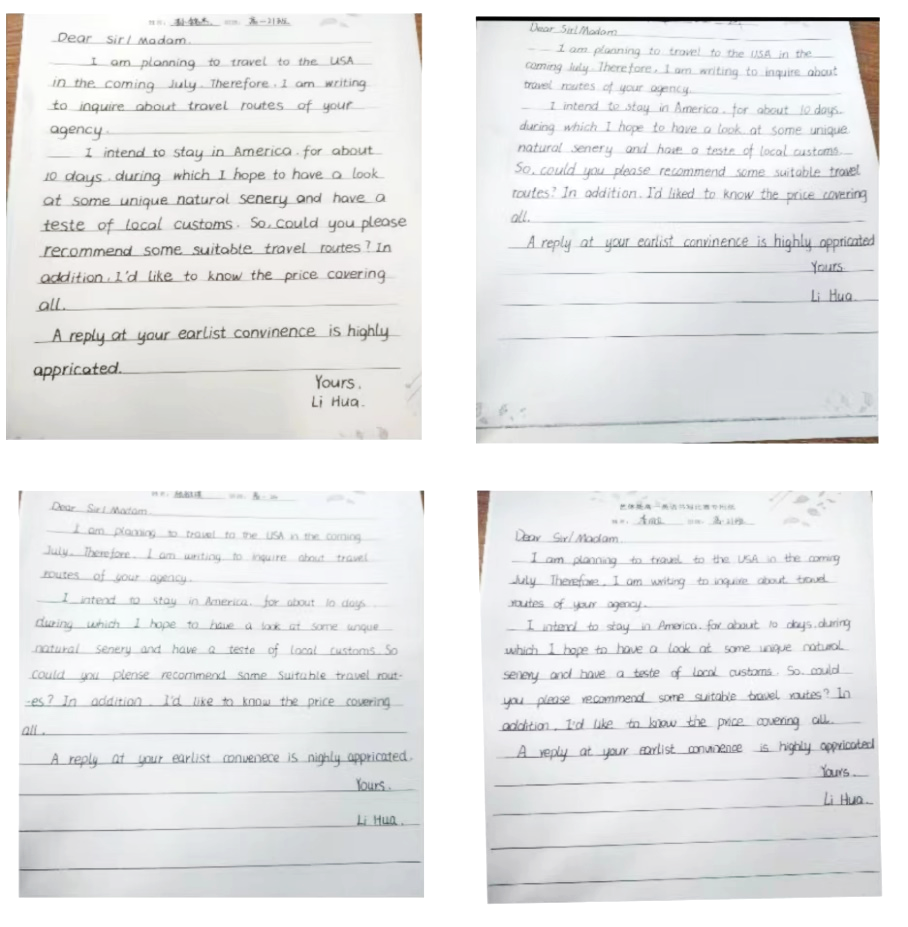 姓名: 班级: 高一21班
Dear Sir/Madam.
I am planning to travel to the USA
in the coming July. Therefore, I am writing
to inquire about travel routes of your
agency.
I intend to stay in America. for about
10 days. during which I hope to have a look
at some unique natural senery and have a
teste of local customs. So, could you please
recommend some suitable travel routes? In
addition, I'd like to know the price covering
all.
A reply at your earlist convinence is highly
appricated.
Yours,
Li Hua.
Dear Sir/Madam
I am planning to travel to the USA in the
coming July. Therefore, I am writing to inquire about
travel routes of your agency.
I intend to stay in America. for about 10 days.
during which I hope to have a look at some unique
natural senery and have a teste of local customs.
So, could you please recommend some suitable travel
routes? In addition, I'd liked to know the price covering
all.
A reply at your earlist convinence is highly appricated
Yours.
Li Hua.
Dear Sir/Madam.
I am planning to travel to the USA in the coming
July. Therefore, I am writing to inquire about travel
routes of your agency.
I intend to stay in America. for about 10 days.
during which I hope to have a look at some unque
natural senery and have a teste of local customs. So
could you plense recommend some suitable travel rout-
-es? In addition, I'd like to know the price covering
all.
A reply at your earlist convenece is nighly appricated.
Yours.
Li Hua.
高一英语书写比赛专用纸
姓名: 班级: 高一21班
Dear Sir/Madam
I am planning to travel to the USA in the coming
July Therefore, I am writing to inquire about travel
routes of your agency.
I intend to stay in America. for about 10 days. during
which I hope to have a look at some unique natural
senery and have a teste of local customs. So, could
you please recommend some suitable travel routes? In
addition, I'd like to know the price covering all.
A reply at your earlist convinence is highly appricated
Yours.
Li Hua.